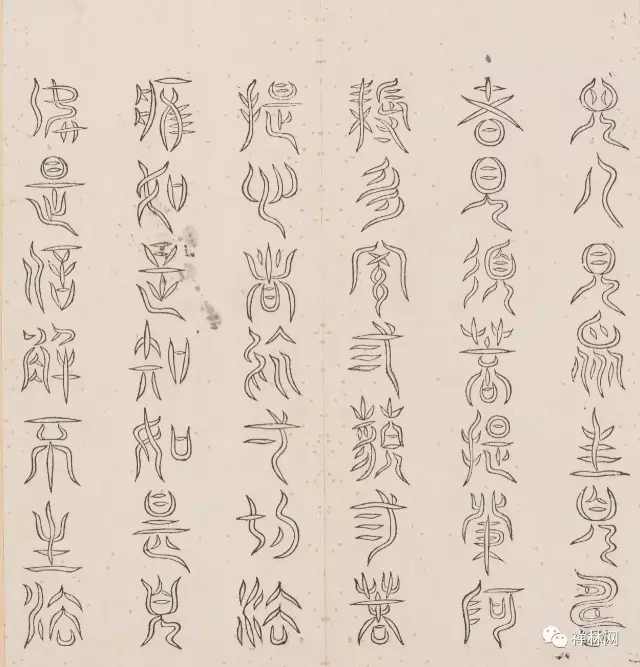 見人見眾生見壽
者見須菩提發阿
耨多羅三藐三菩
提心者於一切法
應如是知如是見
如是信解不生法
禅林网